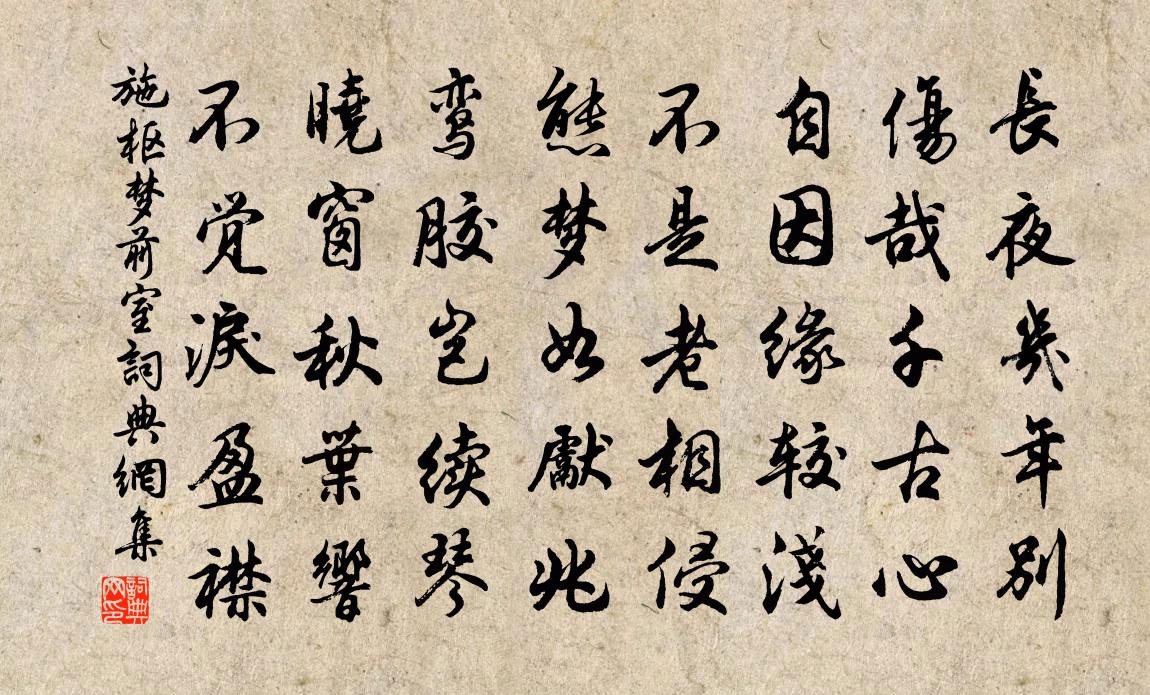 長夜幾年別
傷哉千古心
自因缘较淺
不是老相侵
熊梦如獻兆
鸾胶岂续琴
曉窗秋葉響
不觉淚盈襟
施枢梦前室詞典網集
詞典網印